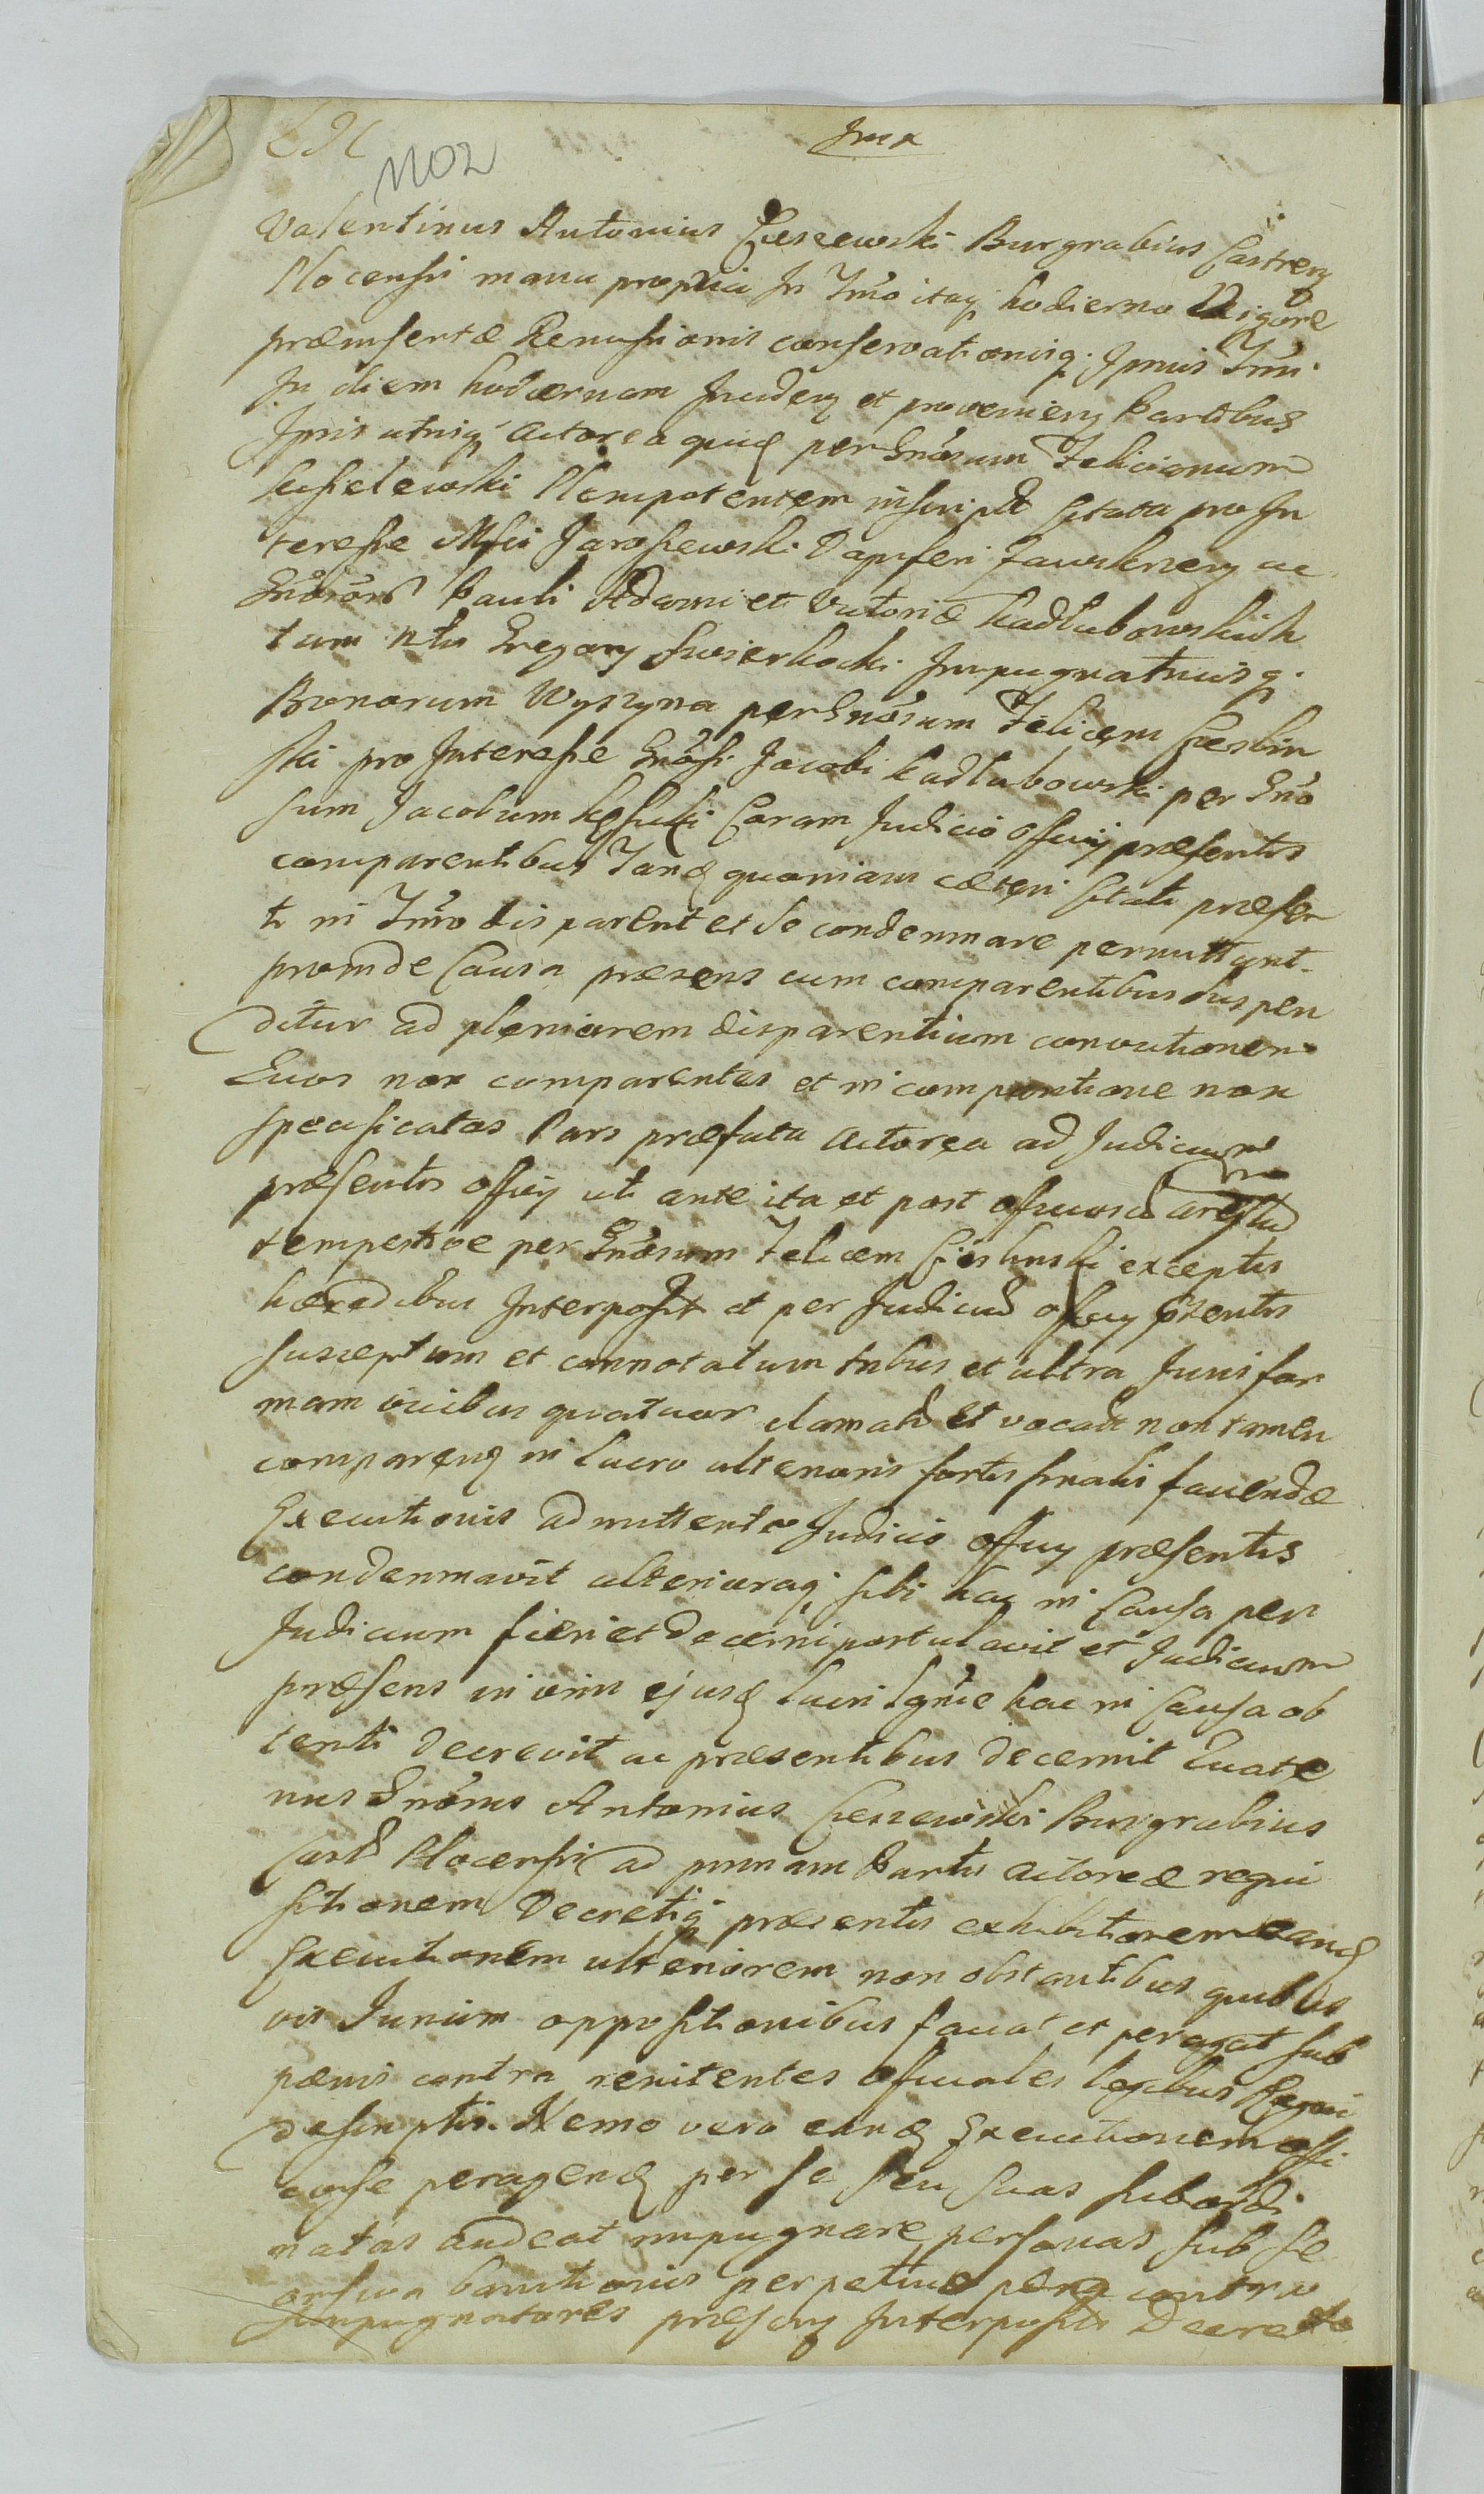 1102
Valentinus Antonius Cieszewski Burgrabius Castren
Plocensis manu propria In Tmo itaq hodierno Vigore
præinsertæ Remissionis conservationisq. Ipsius Tmi.
In diem hodiernam Inciden et provenien Partibus
Ipsis utrisq actorea quid per Gnosum Felicianum
Plenipotentem inscript citata pro In
teresse Mfci Jaroszewski Dapiferi Zawskrzen ac
Gnosorū Pauli Adami et Victoriæ Kadłubowskich
tum Nlis Gregory Swierkocki Impugnatuusq.
Bonorum Wyszyna per Gnosum Felicem Cieslin
ski pro Interesse Gnosi Jacobi Kadłubowski per Gno
sum Jacobum Coram Judicio officij præsentis
comparentibus Tand quoniam cæteri Citati præsen
ti in Tmo disparent et se condemnare permittunt.
proinde Causa præsens cum comparentibus suspen
ditur ad pleniorem disparentium convictionem
Quos non comparentes et in comparitione non
specificatos Pars præfata actorea ad Judicium
præsentis officij uti ante ita et post officiosū arestū
tempestive per Gnosum Felicem Cieslinski exceptis
hæredibus Interposit et per Judiciū officij præsentis
susceptum et connotatum tribus et ultra Juris for
mam vicibus quatuor clamatū et vocatū non tamen
comparend in lucro ulterioris fortis finalis faciendæ
Executionis admittente Judicio officij præsentis
condemnavit ulterioraq. sibi hac in Causa per
Judicium fieri et decerni postulavit et Judicium
præsens in vim ejusd lucri Ignie hac in Causa ob
tenti decrevit ac præsentibus decernit Quate
nus Gnosus Antonius Cieszewski Burgrabius
Castr Plocensis ad primam Partis actoreæ requi
sitionem Decretiq præsentis exhibitionem eand
Executionem ulteriorem non obstantibus quibus
vis Jurium oppositionibus faciat et peragat sub
pænis contra renitentes officiales legibus Regni
descriptis. Nemo vero eand Executionem offi
ciose peragend per se seu suas subordi
natas audeat impugnare personas sub se
orsiva bannitionis perpetuæ pæna contra
Impugnatores præsen Interposita Decreto